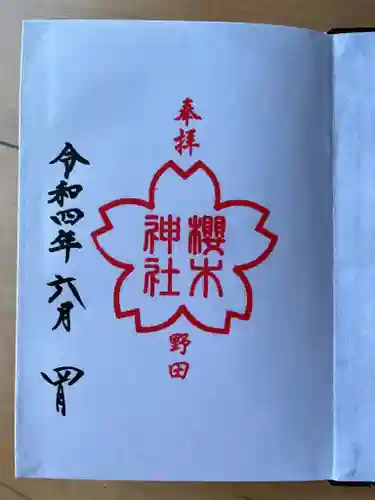 奉拝
櫻木
神社
野田
令和四年六月四日